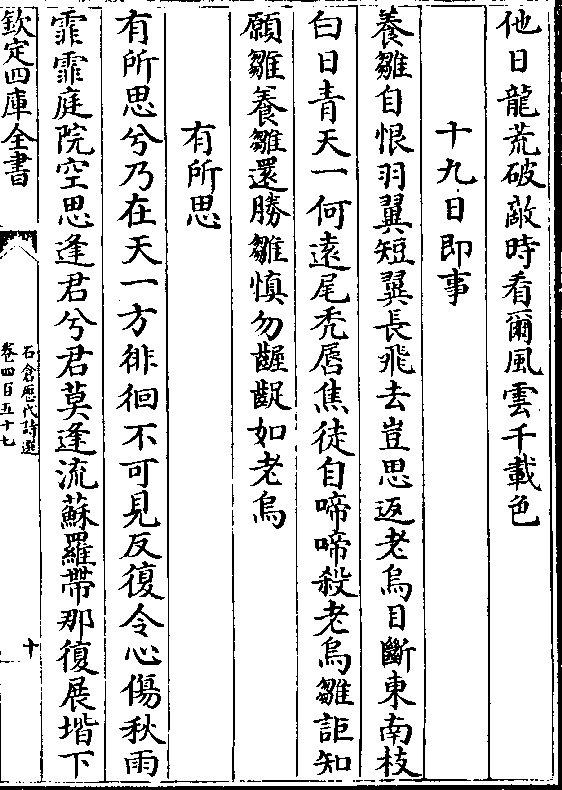 他日龍荒破敵時看爾風雲千載色
十九日即事
養雛自恨羽翼短翼長飛去豈思返老烏目斷東南枝
白日青天一何遠尾禿脣焦徒自啼啼殺老烏雛詎知
願雛養雛還勝雛慎勿齷齪如老烏
有所思
有所思兮乃在天一方徘徊不可見反復令心傷秋雨
霏霏庭院空思逢君兮君莫逢流蘇羅帶那復展堦下
欽定四庫全書
石倉歷代詩選
卷四百五十七
十